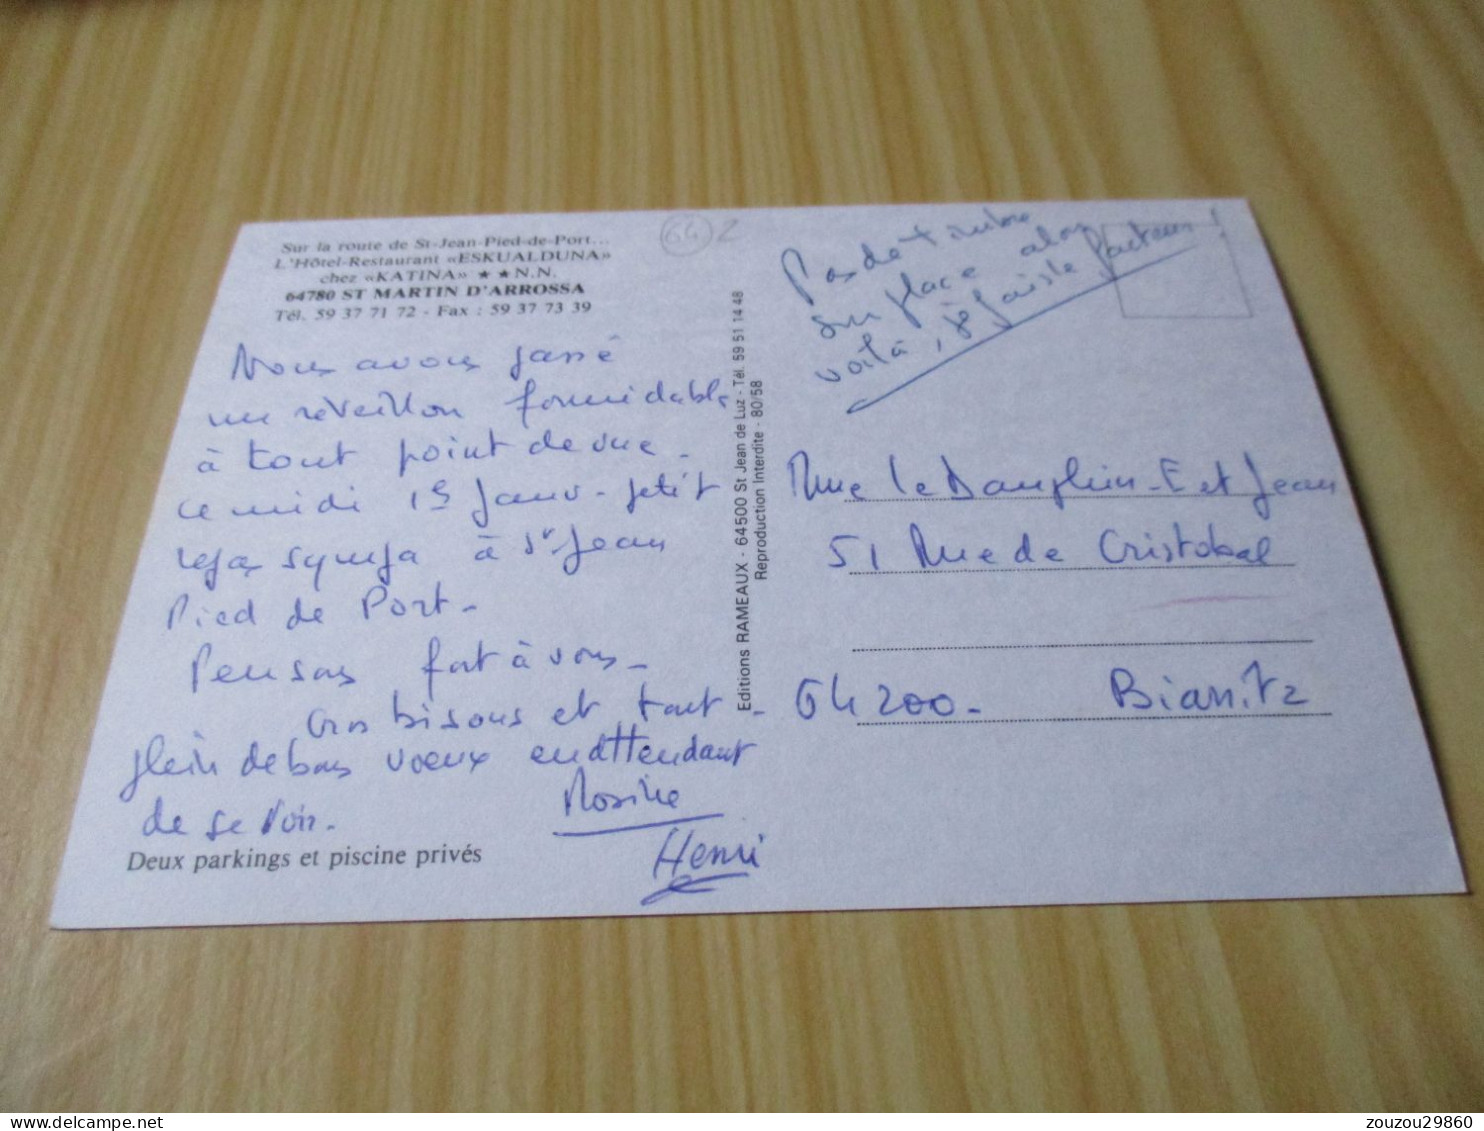 Sur la route de St-Jean-Pied-de-Port...
L'Hôtel-Restaurant «ESKUALDUNA»
chez «KATINA» ★★N.N.
64780 ST MARTIN D'ARROSSA
Tél. 59 37 71 72 - Fax : 59 37 73 39
Nous avons passé
un réveillon formidable
à tout point de vue.
ce midi 1er Janv - petit
repas sympa à St Jean
Pied de Port -
Pensons fort à vous -
Gros bisous et tout -
plein de bons voeux en attendant
de se voir.
Rosine
Henri
Deux parkings et piscine privés
Editions RAMEAUX - 64500 St Jean de Luz - Tél. 59 51 14 48
Reproduction Interdite - 80/58
64 2
Pas de timbre
sur place alors
voilà, je fais le facteur !
Mme le Dauphin - E et Jean
51 Rue de Cristobal
64200 - Biarritz
zouzou29860